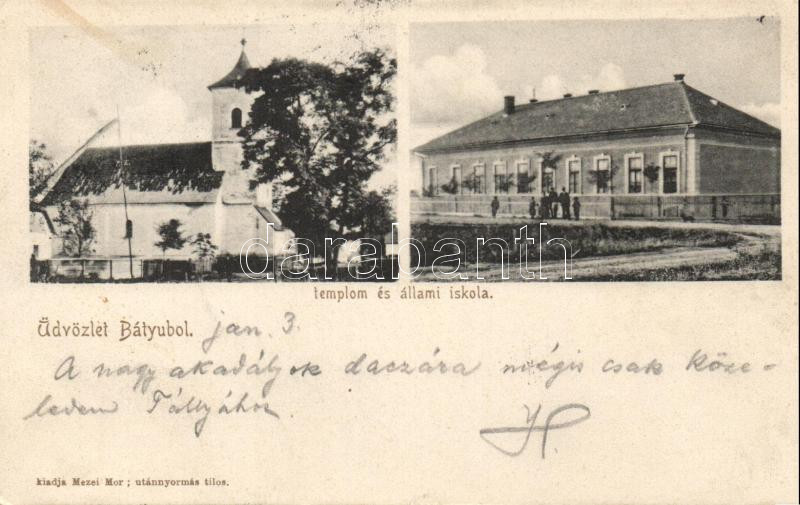 templom és állami iskola.
Üdvözlet Bátyubol. jan. 3.
A nagy akadályok daczára mégis csak köze-
ledem Tállyához
kiadja Mezei Mor ; utánnyormás tilos.
darabanth